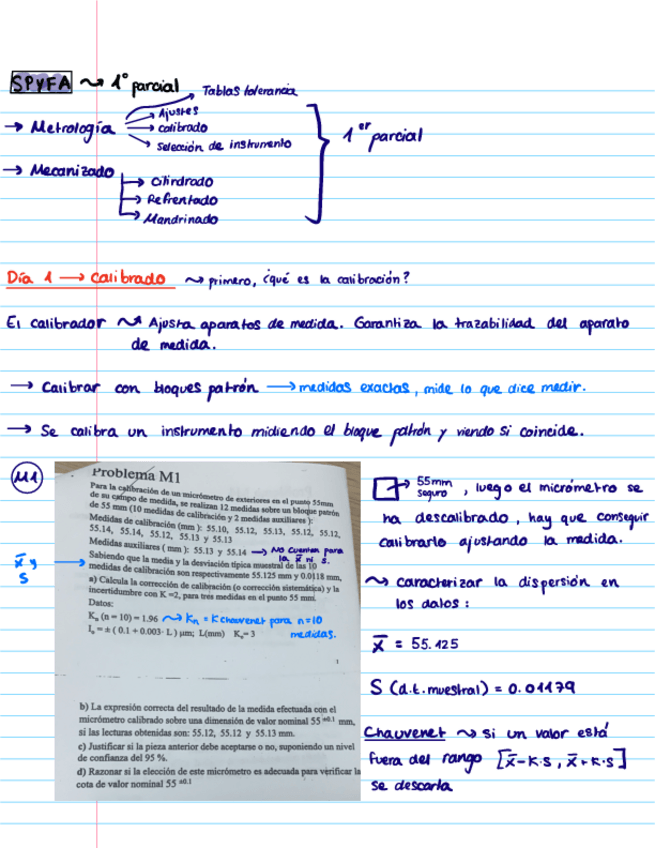 SPYFA ~> 1º parcial
Tablas tolerancia
→ Metrología → Ajustes
→ calibrado
→ selección de instrumento
1er parcial
→ Mecanizado → cilindrado
→ Refrentado
→ Mandrinado
Día 1 → calibrado ~> primero, ¿qué es la calibración?
El calibrador ~> Ajusta aparatos de medida. Garantiza la trazabilidad del aparato
de medida.
→ Calibrar con bloques patrón → medidas exactas, mide lo que dice medir.
→ Se calibra un instrumento midiendo el bloque patrón y viendo si coincide.
M1
Problema M1
Para la calibración de un micrómetro de exteriores en el punto 55mm
de su campo de medida, se realizan 12 medidas sobre un bloque patrón
de 55 mm (10 medidas de calibración y 2 medidas auxiliares ):
Medidas de calibración (mm ): 55.10, 55.12, 55.13, 55.12, 55.12,
55.14, 55.14, 55.12, 55.13 y 55.13
Medidas auxiliares ( mm ): 55.13 y 55.14 → No cuentan para
la x̄ ni s.
x̄ y
s
Sabiendo que la media y la desviación típica muestral de las 10
medidas de calibración son respectivamente 55.125 mm y 0.0118 mm,
a) Calcula la corrección de calibración (o corrección sistemática) y la
incertidumbre con K =2, para tres medidas en el punto 55 mm.
Datos:
Kn (n = 10) = 1.96 ~> Kn = K chauvenet para n=10
medidas.
Io = ± ( 0.1 + 0.003· L ) μm; L(mm) Ko= 3
1
b) La expresión correcta del resultado de la medida efectuada con el
micrómetro calibrado sobre una dimensión de valor nominal 55 ±0.1 mm,
si las lecturas obtenidas son: 55.12, 55.12 y 55.13 mm.
c) Justificar si la pieza anterior debe aceptarse o no, suponiendo un nivel
de confianza del 95 %.
d) Razonar si la elección de este micrómetro es adecuada para verificar la
cota de valor nominal 55 ±0.1
→ 55mm
seguro , luego el micrómetro se
ha descalibrado, hay que conseguir
calibrarlo ajustando la medida.
~> caracterizar la dispersión en
los datos:
x̄ = 55.125
S (d.t. muestral) = 0.01179
Chauvenet ~> si un valor está
fuera del rango [x̄-K·S, x̄+K·S]
se descarta